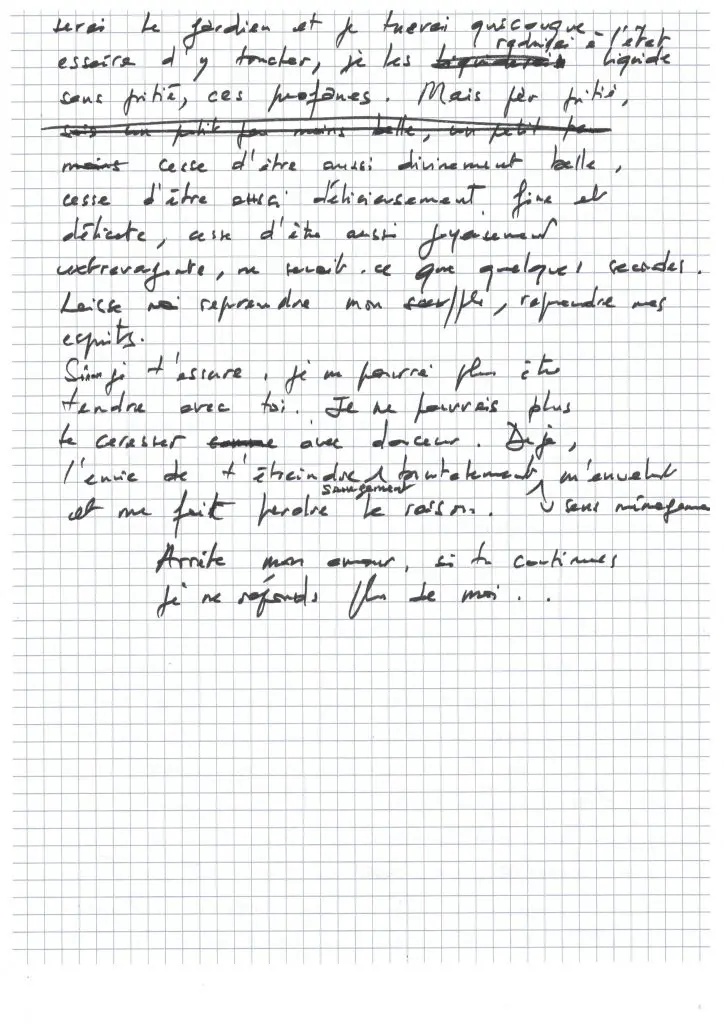 serai le gardien et je tuerai quiconque
réduirai à l'état
essaira d'y toucher, je les liquiderais liquide
sans pitié, ces profanes. Mais par pitié,
sois un petit peu moins belle, un petit peu
moins cesse d'être aussi divinement belle,
cesse d'être aussi délicieusement fine et
délicate, cesse d'être aussi joyeusement
extravagante, ne serait-ce que quelques secondes.
Laisse moi reprendre mon souffle, reprendre mes
esprits.
Sinon je t'assure, je ne pourrai plus être
tendre avec toi. Je ne pourrais plus
te caresser comme avec douceur. Déjà,
l'envie de t'étreindre brutalement, m'envahit
sauvagement
et me fait perdre la raison. sans ménagement
Arrête mon amour, si tu continues
je ne réponds plus de moi..